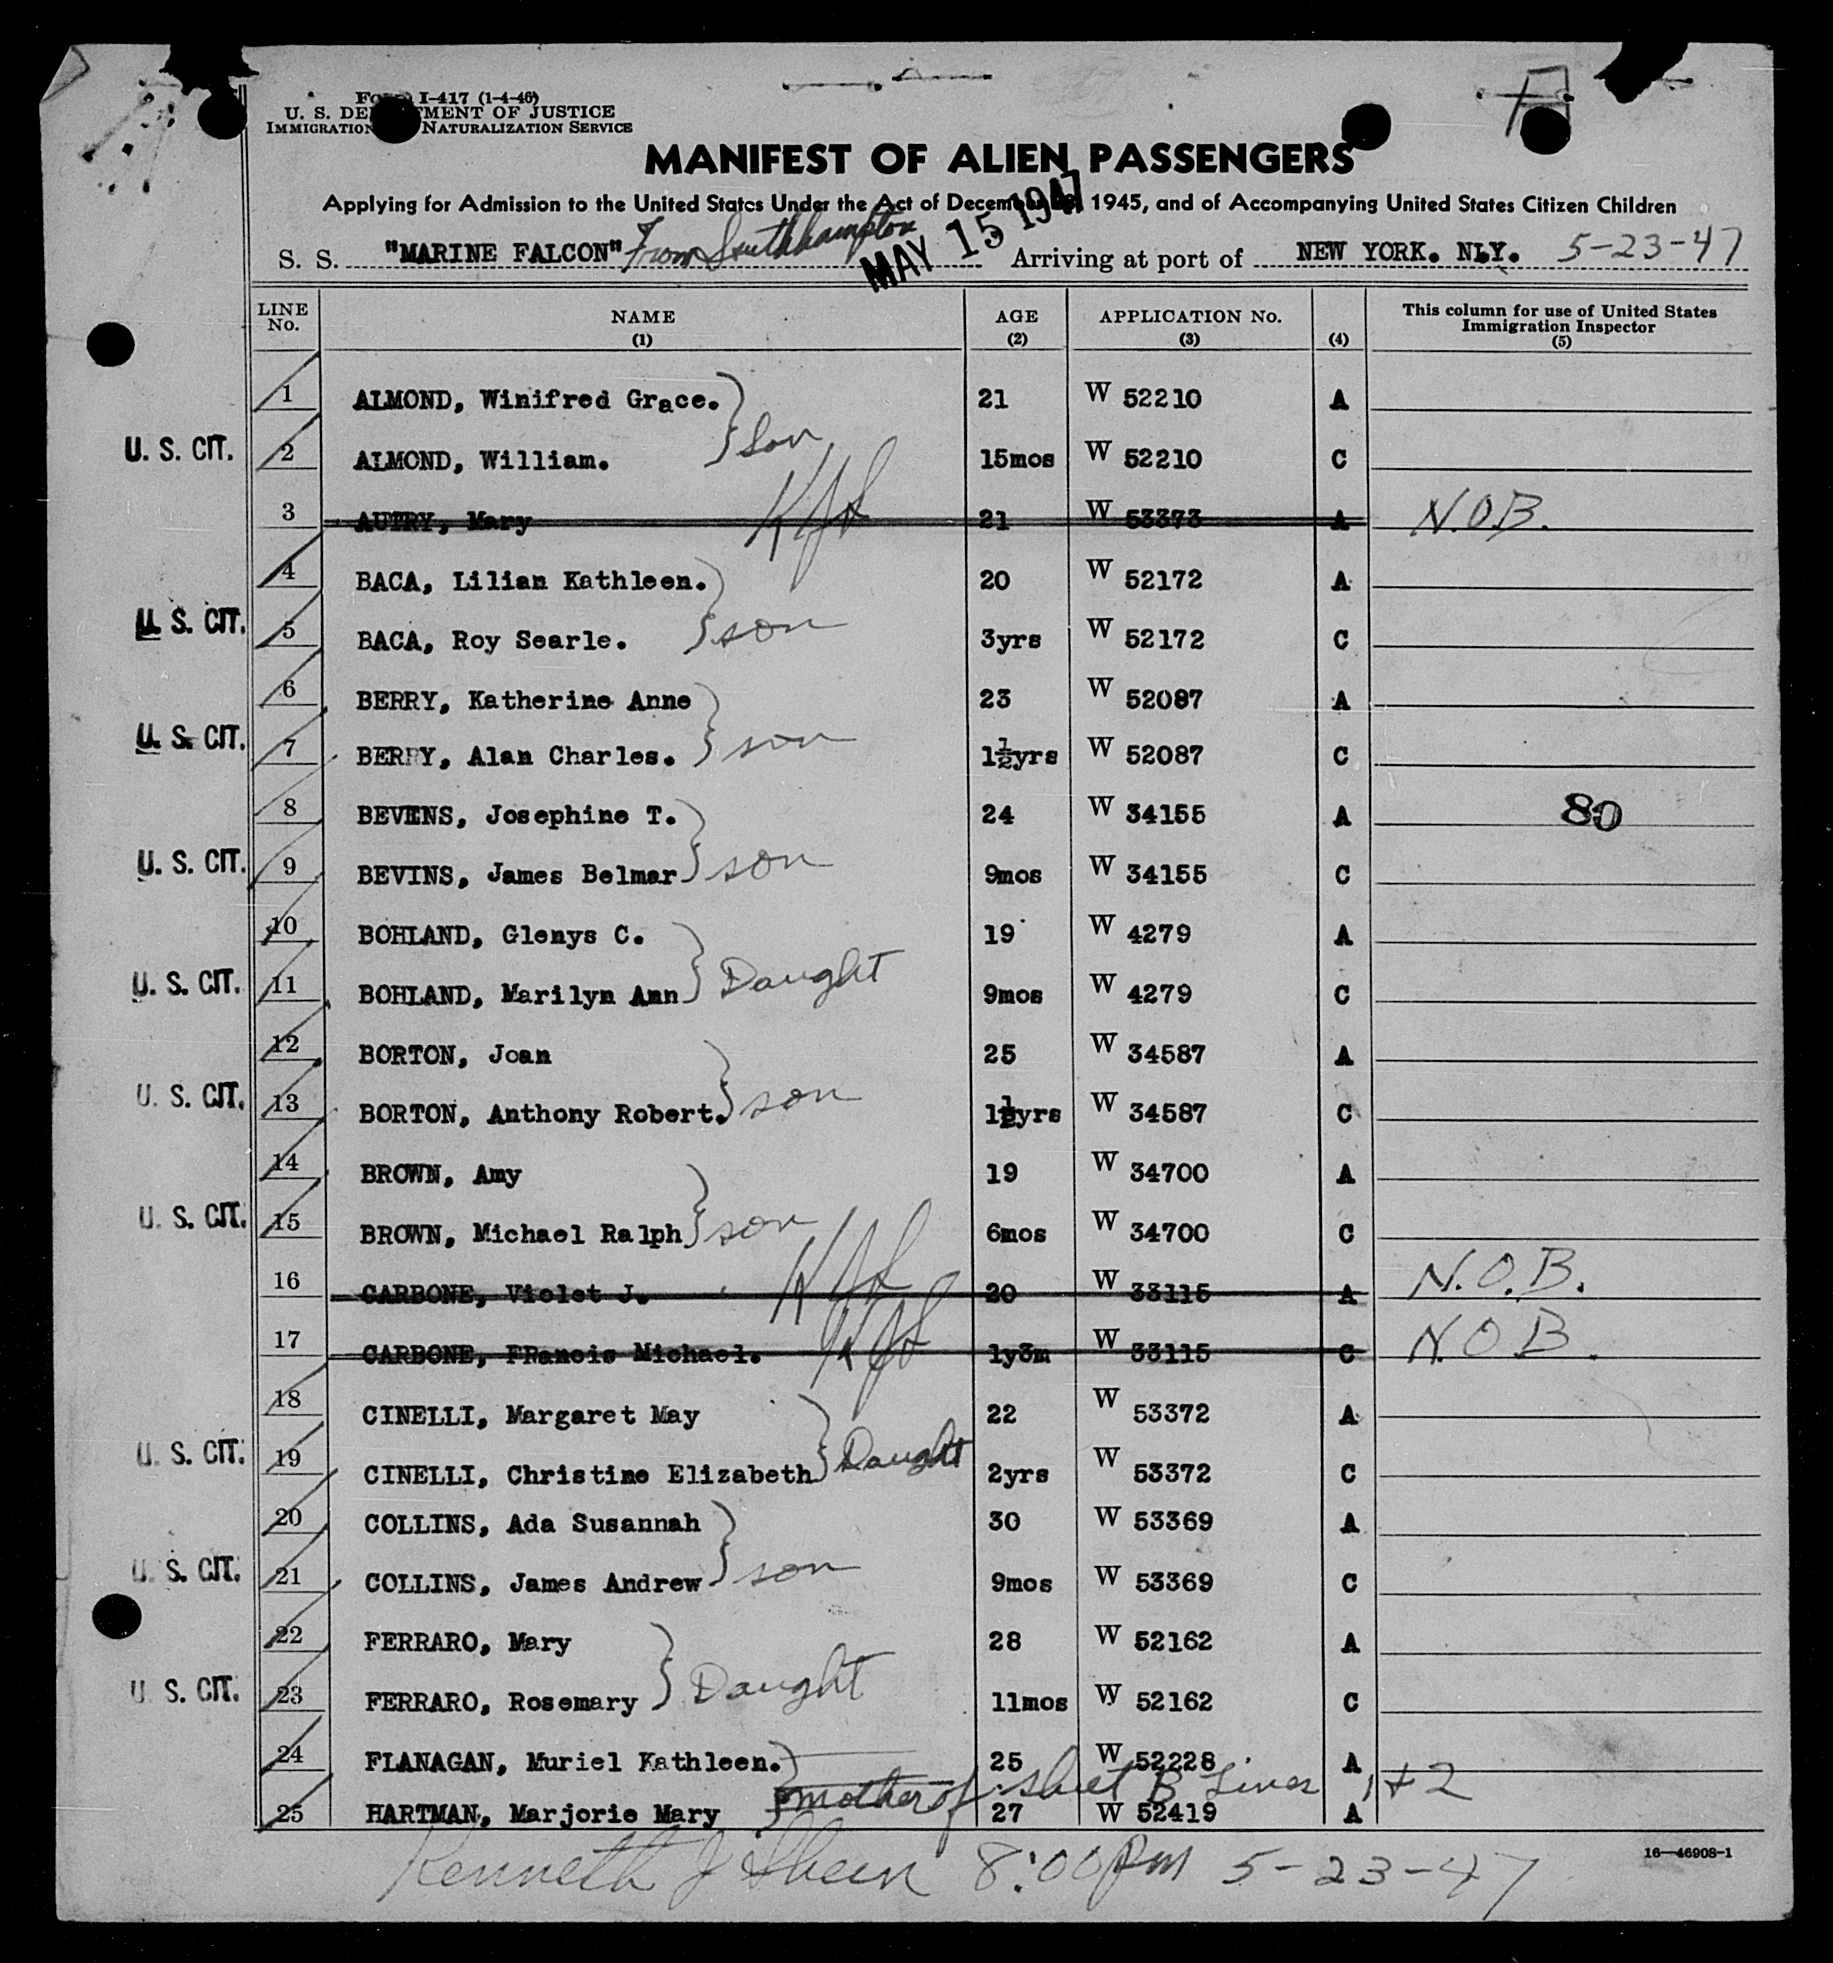 Form I-417 (1-4-46)
U. S. DEPARTMENT OF JUSTICE
IMMIGRATION NATURALIZATION SERVICE
MANIFEST OF ALIEN PASSENGERS
Applying for Admission to the United States Under the Act of December 1945, and of Accompanying United States Citizen Children
MAY 15 1947
S. S. "MARINE FALCON" From Southhampton Arriving at port of NEW YORK. N.Y. 5-23-47
LINE No. NAME (1) AGE (2) APPLICATION No. (3) (4) This column for use of United States Immigration Inspector (5)
1 ALMOND, Winifred Grace. 21 W 52210 A
U. S. CIT. 2 ALMOND, William. } Son 15mos W 52210 C
3 AUTRY, Mary KJS 21 W 53373 A N.O.B.
4 BACA, Lilian Kathleen. 20 W 52172 A
U. S. CIT. 5 BACA, Roy Searle. } son 3yrs W 52172 C
6 BERRY, Katherine Anne 23 W 52087 A
U. S. CIT. 7 BERRY, Alan Charles. } son 1½yrs W 52087 C
8 BEVENS, Josephine T. 24 W 34155 A 80
U. S. CIT. 9 BEVINS, James Belmar } son 9mos W 34155 C
10 BOHLAND, Glenys C. 19 W 4279 A
U. S. CIT. 11 BOHLAND, Marilyn Ann } Daught 9mos W 4279 C
12 BORTON, Joan 25 W 34587 A
U. S. CIT. 13 BORTON, Anthony Robert. } son 1½yrs W 34587 C
14 BROWN, Amy 19 W 34700 A
U. S. CIT. 15 BROWN, Michael Ralph } son 6mos W 34700 C
16 CARBONE, Violet J. KJS 20 W 33115 A N.O.B.
17 CARBONE, FRancis Michael. KJS 1y3m W 33115 C N.O.B.
18 CINELLI, Margaret May 22 W 53372 A
U. S. CIT. 19 CINELLI, Christine Elizabeth } Daught 2yrs W 53372 C
20 COLLINS, Ada Susannah 30 W 53369 A
U. S. CIT. 21 COLLINS, James Andrew } son 9mos W 53369 C
22 FERRARO, Mary 28 W 52162 A
U. S. CIT. 23 FERRARO, Rosemary } Daught 11mos W 52162 C
24 FLANAGAN, Muriel Kathleen. 25 W 52228 A
mother of sheet B Lines 1 + 2
25 HARTMAN, Marjorie Mary 27 W 52419 A
16—46908-1
Kenneth J Sheen 8:00 PM 5-23-47